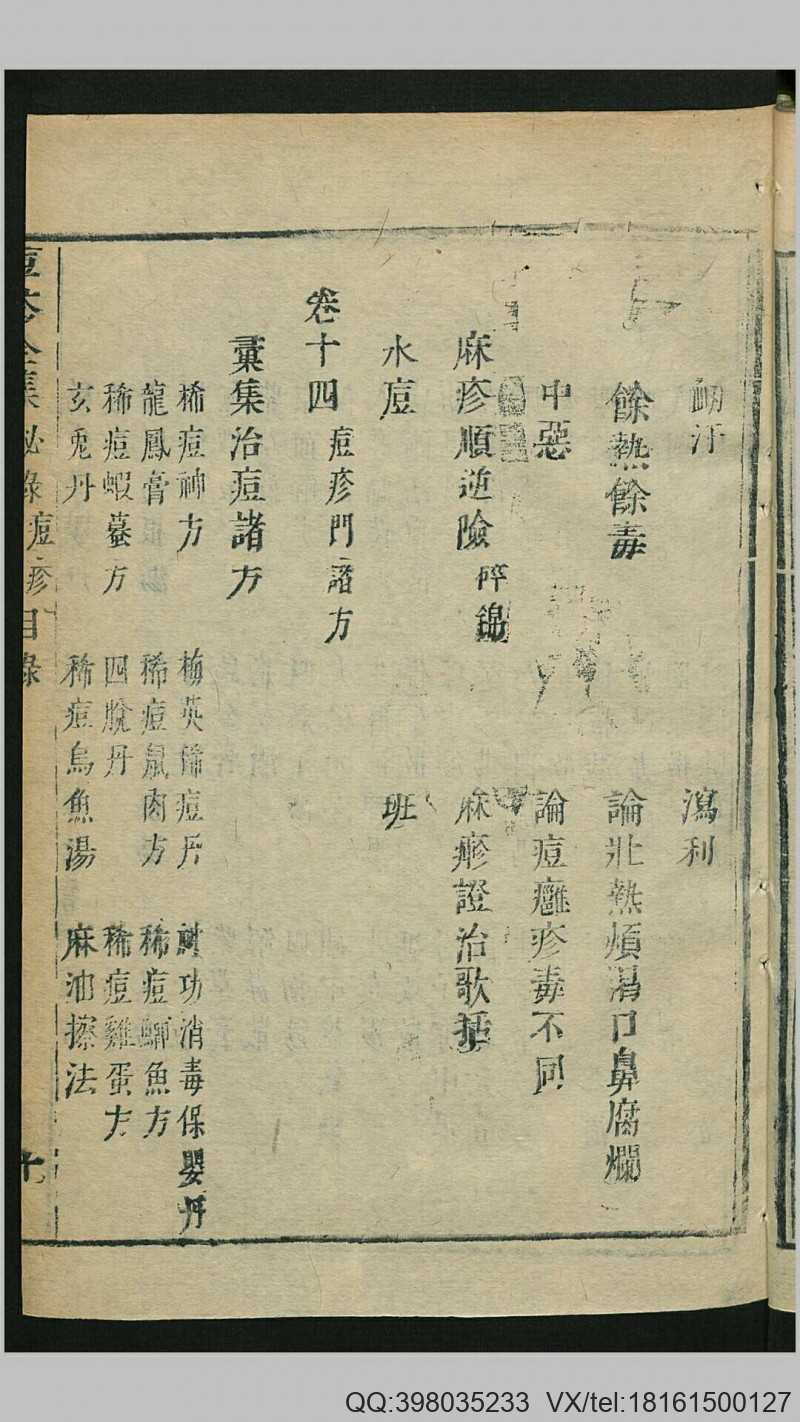 衄汗　瀉利
餘熱餘毒　論壯熱煩渴口鼻腐爛
中惡　論痘癰疹毒不同
麻疹順逆險　碎錦　麻疹證治歌括
水痘　斑
卷十四　痘疹門諸方
彙集治痘諸方
稀痘神方　梅英稀痘丹　功消毒保嬰丹
龍鳳膏　稀痘鼠肉方　稀痘鯽魚方
稀痘蝦蟇方　四脫丹　稀痘雞蛋方
玄兎丹　稀痘烏魚湯　麻油擦法
痘疹全集　秘錄痘疹目錄
QQ:398035233 VX/tel:18161500127